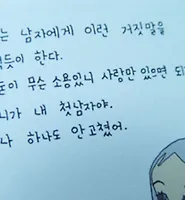 는 남자에게 이런 거짓말을
듯이 한다.
무슨 소용있니 사랑만 있으면
내 첫남자야.
하나도 안고쳤어.